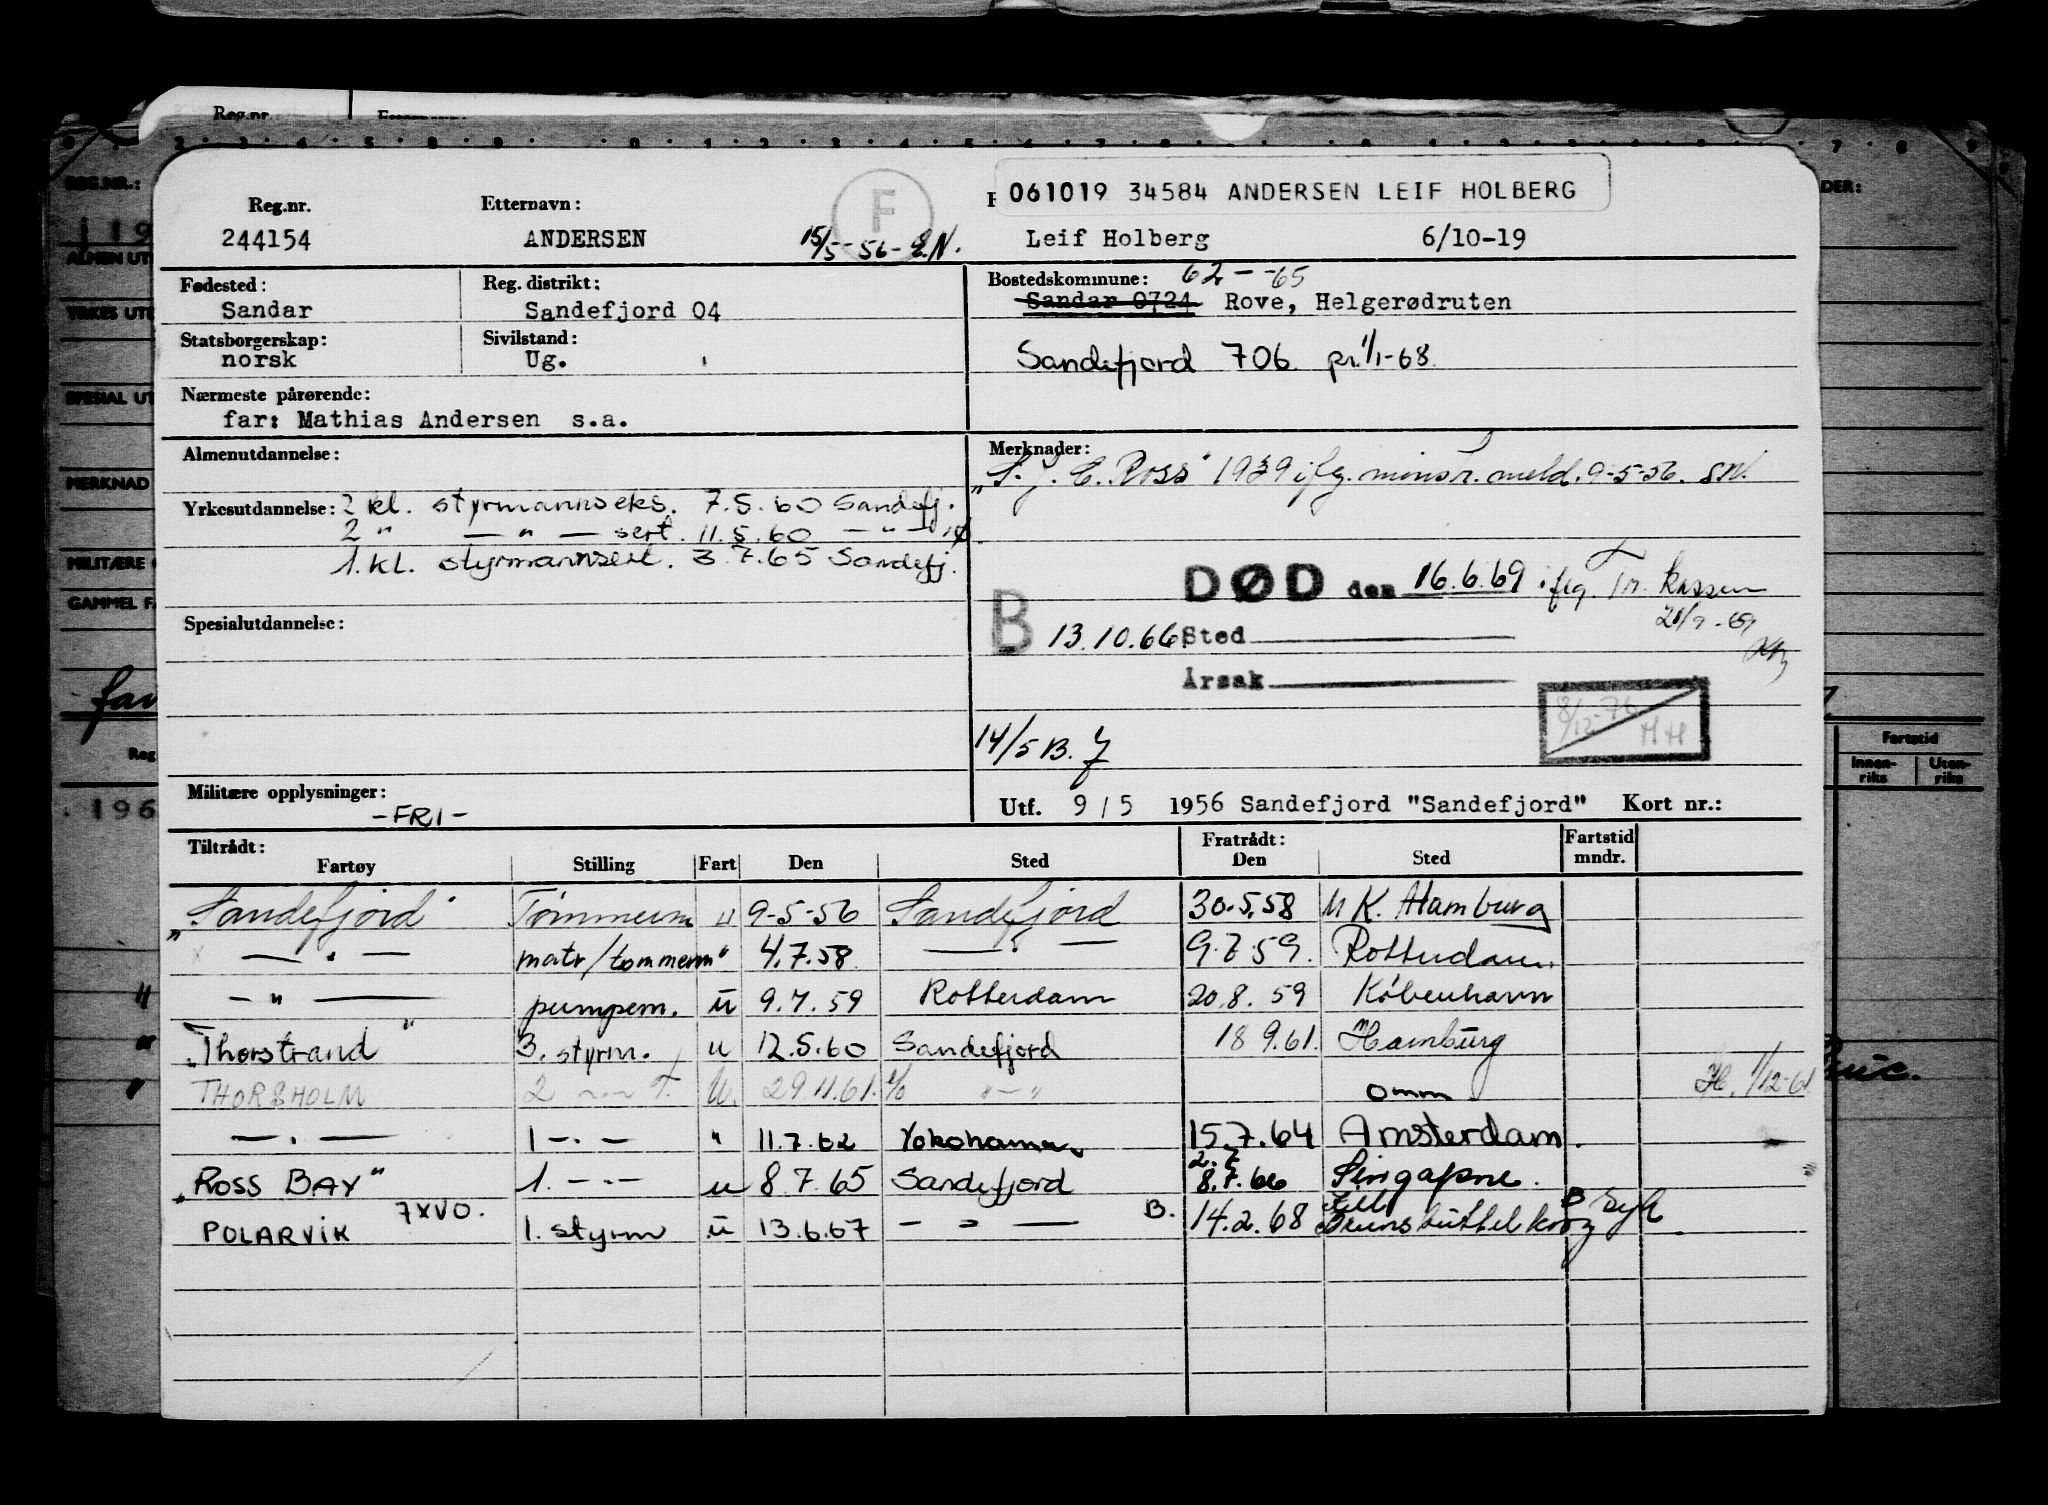 Reg.nr.
061019 34584 ANDERSEN LEIF HOLBERG
Reg.nr. Etternavn: F
244154 ANDERSEN 15/5-56- E.N. Leif Holberg 6/10-19
Fødested: Reg. distrikt: Bostedskommune: 62--65
Sandar Sandefjord 04 Sandar 0724 Rove, Helgerødruten
Statsborgerskap: Sivilstand:
norsk Ug. Sandefjord 706 pr. 1/1-68
Nærmeste pårørende:
far: Mathias Andersen s.a.
Almenutdannelse: Merknader:
"S. J. E. Ross" 1939 iflg. mønstr. meld. 9-5-56. SN.
Yrkesutdannelse: 2 kl. styrmannseks. 7.5.60 Sandefj.
2 " — " — sert. 11.5.60 — " —
1. kl. styrmannsert. 3.7.65 Sandefj.
DØD den 16.6.69 iflg. Tr. kassen
21/7-69
Spesialutdannelse:
B 13.10.66 Sted
Årsak
8/12-76 HH
14/5 B.
Militære opplysninger: -FRI-
Utf. 9/5 1956 Sandefjord "Sandefjord" Kort nr.:
Tiltrådt: Fratrådt: Fartstid
Fartøy Stilling Fart Den Sted Den Sted mndr.
"Sandefjord" Tømmerm u 9-5-56 Sandefjord 30.5.58 M K. Hamburg
— " — matr/tømmerm " 4.7.58 — " — 9.7.59. Rotterdam
— " — pumpem. u 9.7.59 Rotterdam 20.8.59 København
"Thorstrand" 3. styrm. u 12.5.60 Sandefjord 18 9.61. Hamburg
THORSHOLM 2 — " — T. u. 29.11.61. — " — omm H. 1/12-61
— " — 1 — " — " 11.7.62 Yokohama 15.7.64 Amsterdam.
"ROSS BAY" 1. — " — u 8.7.65 Sandefjord 2.7 8.7.66 Singapore.
POLARVIK 7XVO. 1. styrm u 13.6.67 — " — B. 14.2.68 Brunsbüttelkoog B syk
REG.NR.:
MERKNAD
Fartstid
Innen-riks Uten-riks
196